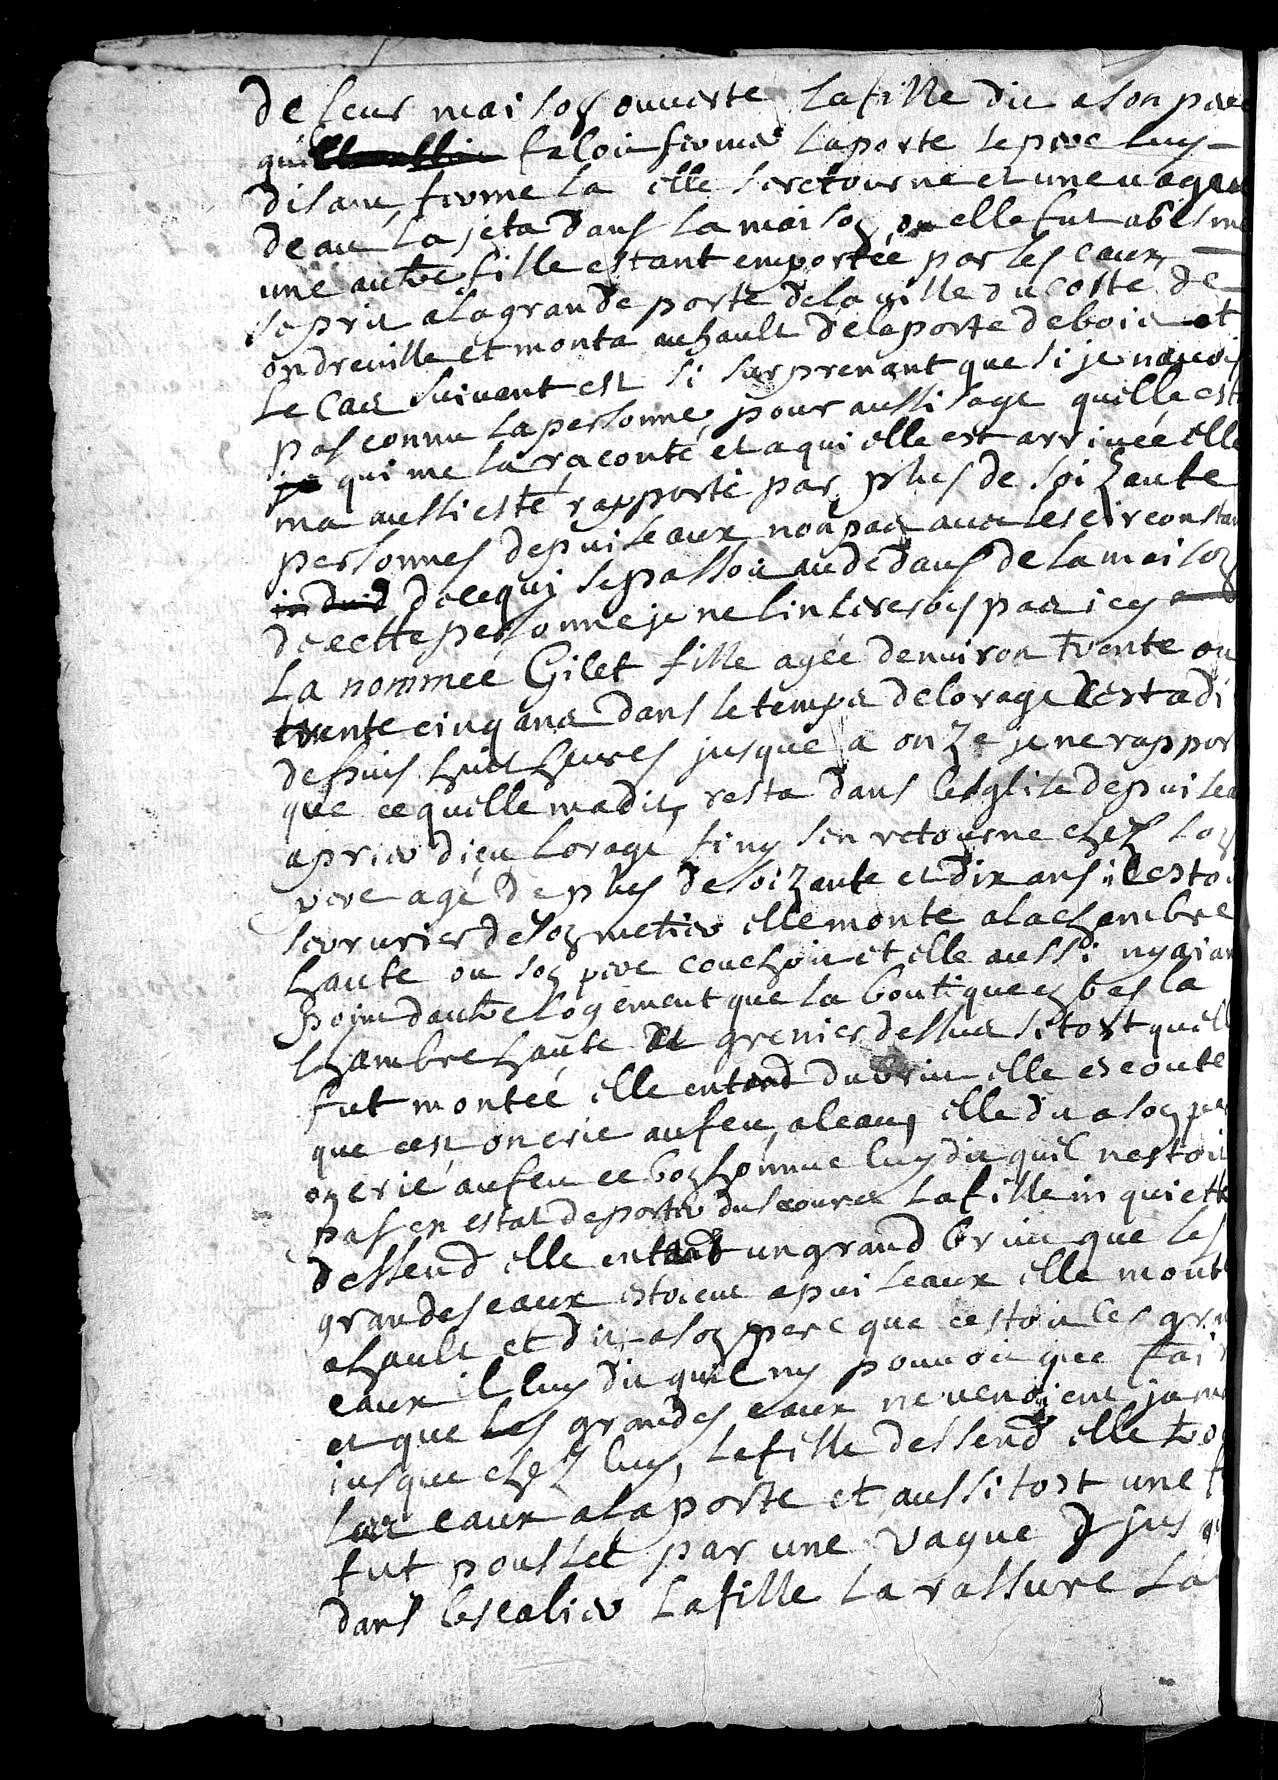 de leur maison ouverte la fille dit a son pere
qui faloit fermer la porte le pere luy
disant ferme la elle s retourne et une vague
deau la jeta dans la maison ou elle fut abisme
une autre fille estant emportée par les eaux
se prit a la grande porte de la ville du costé de
ondreville et monta au hault de la porte de bois et
le cas suivant est si surprenant que si je navois
pas connu la personne, pour aussi sage quelle est
qui me la raconté et a qui elle est arrivée elle
ma aussi esté rapporté par plus de soizante
personnes depuis leaux non pas avec les circonstan
de ce qui se passoit au dedans de la maison
de cette personne je ne linsererois pas icy
La nommée Gilet fille agée denviron trente ou
trente cinq ans dans le temps de lorage cest a di
depuis huit heures jusque a onze je ne rappor
que ce quelle ma dit, resta dans leglise depuis lea
a prier dieu lorage finy sen retourne chez son
pere agé de plus de soizante et dix ans il estoi
serrurier de son metier elle monte a la chambre
haute ou son pere couchoit et elle aussi ny aian
point dautre logement que la boutique en bas la
chambre haute et grenier dessus sitost quell
fut montée elle entend du bruit elle escoute
que cest, on crie au feu, a leau, elle dit a son pe
on crie au feu ce bon homme luy dit quil nestoit
pas en estat de porter du secours la fille inquiette
dessend elle entend un grand bruit que les
grandes eaux estoient depuis leaux elle monte
a hault et dit a son pere que cestoit les gra
eaux il luy dit quil ny pouvoit que fair
et que les grandes eaux ne venoient jama
jusque chez luy, la fille dessend elle tro
les eaux a la porte et aussitost une f
fut poussée par une vague jusqu
dans lescalier la fille la rassure la